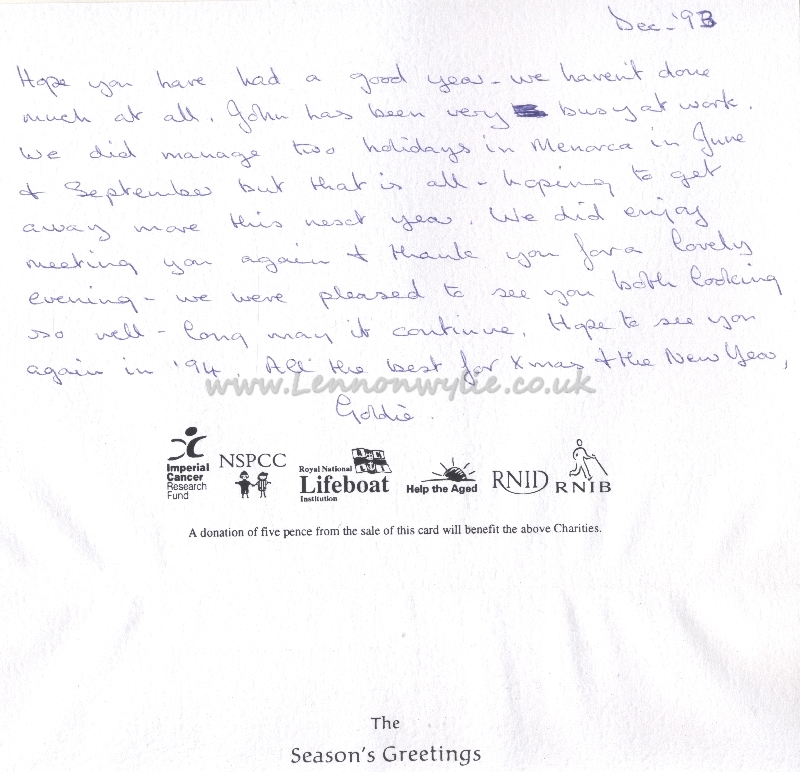 Dec - '93
Hope you have had a good year - we haven't done
much at all. John has been very busy at work.
We did manage two holidays in Menorca in June
& September but that is all - hoping to get
away more this next year. We did enjoy
meeting you again & thank you for a lovely
evening - we were pleased to see you both looking
so well - long may it continue. Hope to see you
again in '94. All the best for Xmas & the New Year,
www.Lennonwylie.co.uk
Goldie.
Imperial
Cancer
Research
Fund
NSPCC
Royal National
Lifeboat
Institution
Help the Aged
RNID
RNIB
A donation of five pence from the sale of this card will benefit the above Charities.
The
Season's Greetings